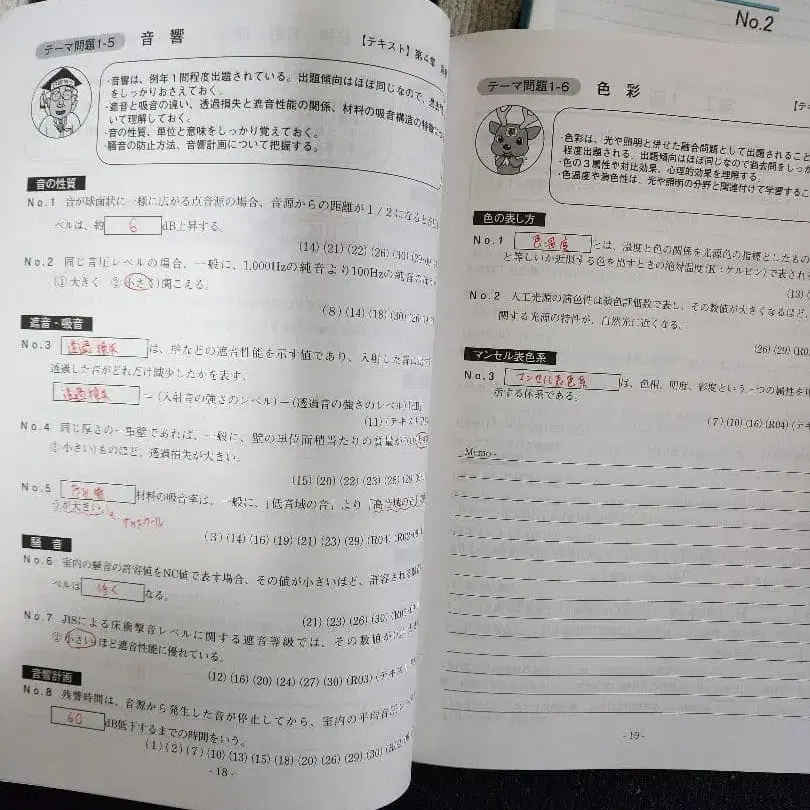 No.2
テーマ問題1-5 音響
【テキスト】第4章
・音響は、例年1問程度出題されている。出題傾向はほぼ同じなので、過去問
をしっかりおさえておく。
・遮音と吸音の違い、透過損失と遮音性能の関係、材料の吸音構造の特徴につ
いて理解しておく。
・音の性質、単位と意味をしっかり覚えておく。
・騒音の防止方法、音響計画について把握する。
音の性質
No.1 音が球面状に一様に広がる点音源の場合、音源からの距離が1/2になると
ベルは、約 6 dB上昇する。
(14)(21)(22)(26)(30)
No.2 同じ音圧レベルの場合、一般に、1,000Hzの純音より100Hzの純音
(①大きく ②小さく)聞こえる。
(8)(14)(18)(30)
遮音・吸音
No.3 透過損失 は、壁などの遮音性能を示す値であり、入射した音に
透過した音がどれだけ減少したかを表す。
透過損失 =(入射音の強さのレベル)-(透過音の強さのレベル)[dB]
(11)(テキスト
No.4 同じ厚さの一重壁であれば、一般に、壁の単位面積当たりの質量が
②小さい)ものほど、透過損失が大きい。
(15)(20)(22)(23)(28)(29)
No.5 多孔質 材料の吸音率は、一般に、「低音域の音」より「高音域の音」
うが大きい。
(3)(14)(16)(19)(21)(23)(29)(R04)
騒音
No.6 室内の騒音の許容値をNC値で表す場合、その値が小さいほど、許容される騒音
ベルは 低く なる。
(21)(23)(26)(30)
No.7 JISによる床衝撃音レベルに関する遮音等級では、その数値が
②小さい)ほど遮音性能に優れている。
(12)(16)(20)(24)(27)(30)(R03)(テキスト
音響計画
No.8 残響時間は、音源から発生した音が停止してから、室内の平均音
60 dB低下するまでの時間をいう。
(1)(2)(7)(10)(13)(15)(18)(20)(26)(29)(30)
- 18 -
テーマ問題1-6 色彩
・色彩は、光や照明と併せた融合問題として出題されること
程度出題される。出題傾向はほぼ同じなので過去問をしっか
・色の3属性や対比効果、心理的効果を理解する。
・色温度や演色性は、光や照明の分野と関連付けて学習するこ
色の表し方
No.1 色温度 とは、温度と色の関係を光源色の指標としたもの
と等しいか近似する色を出すときの絶対温度(K:ケルビン)で表され
(13)
No.2 人工光源の演色性は演色評価数で表し、その数値が大きくなるほど、
関する光源の特性が、自然光に近くなる。
(26)(29)(R0
マンセル表色系
No.3 マンセル表色系 は、色相、明度、彩度という三つの属性を
示する体系である。
(7)(10)(16)(R04)(テキ
-Memo-
- 19 -